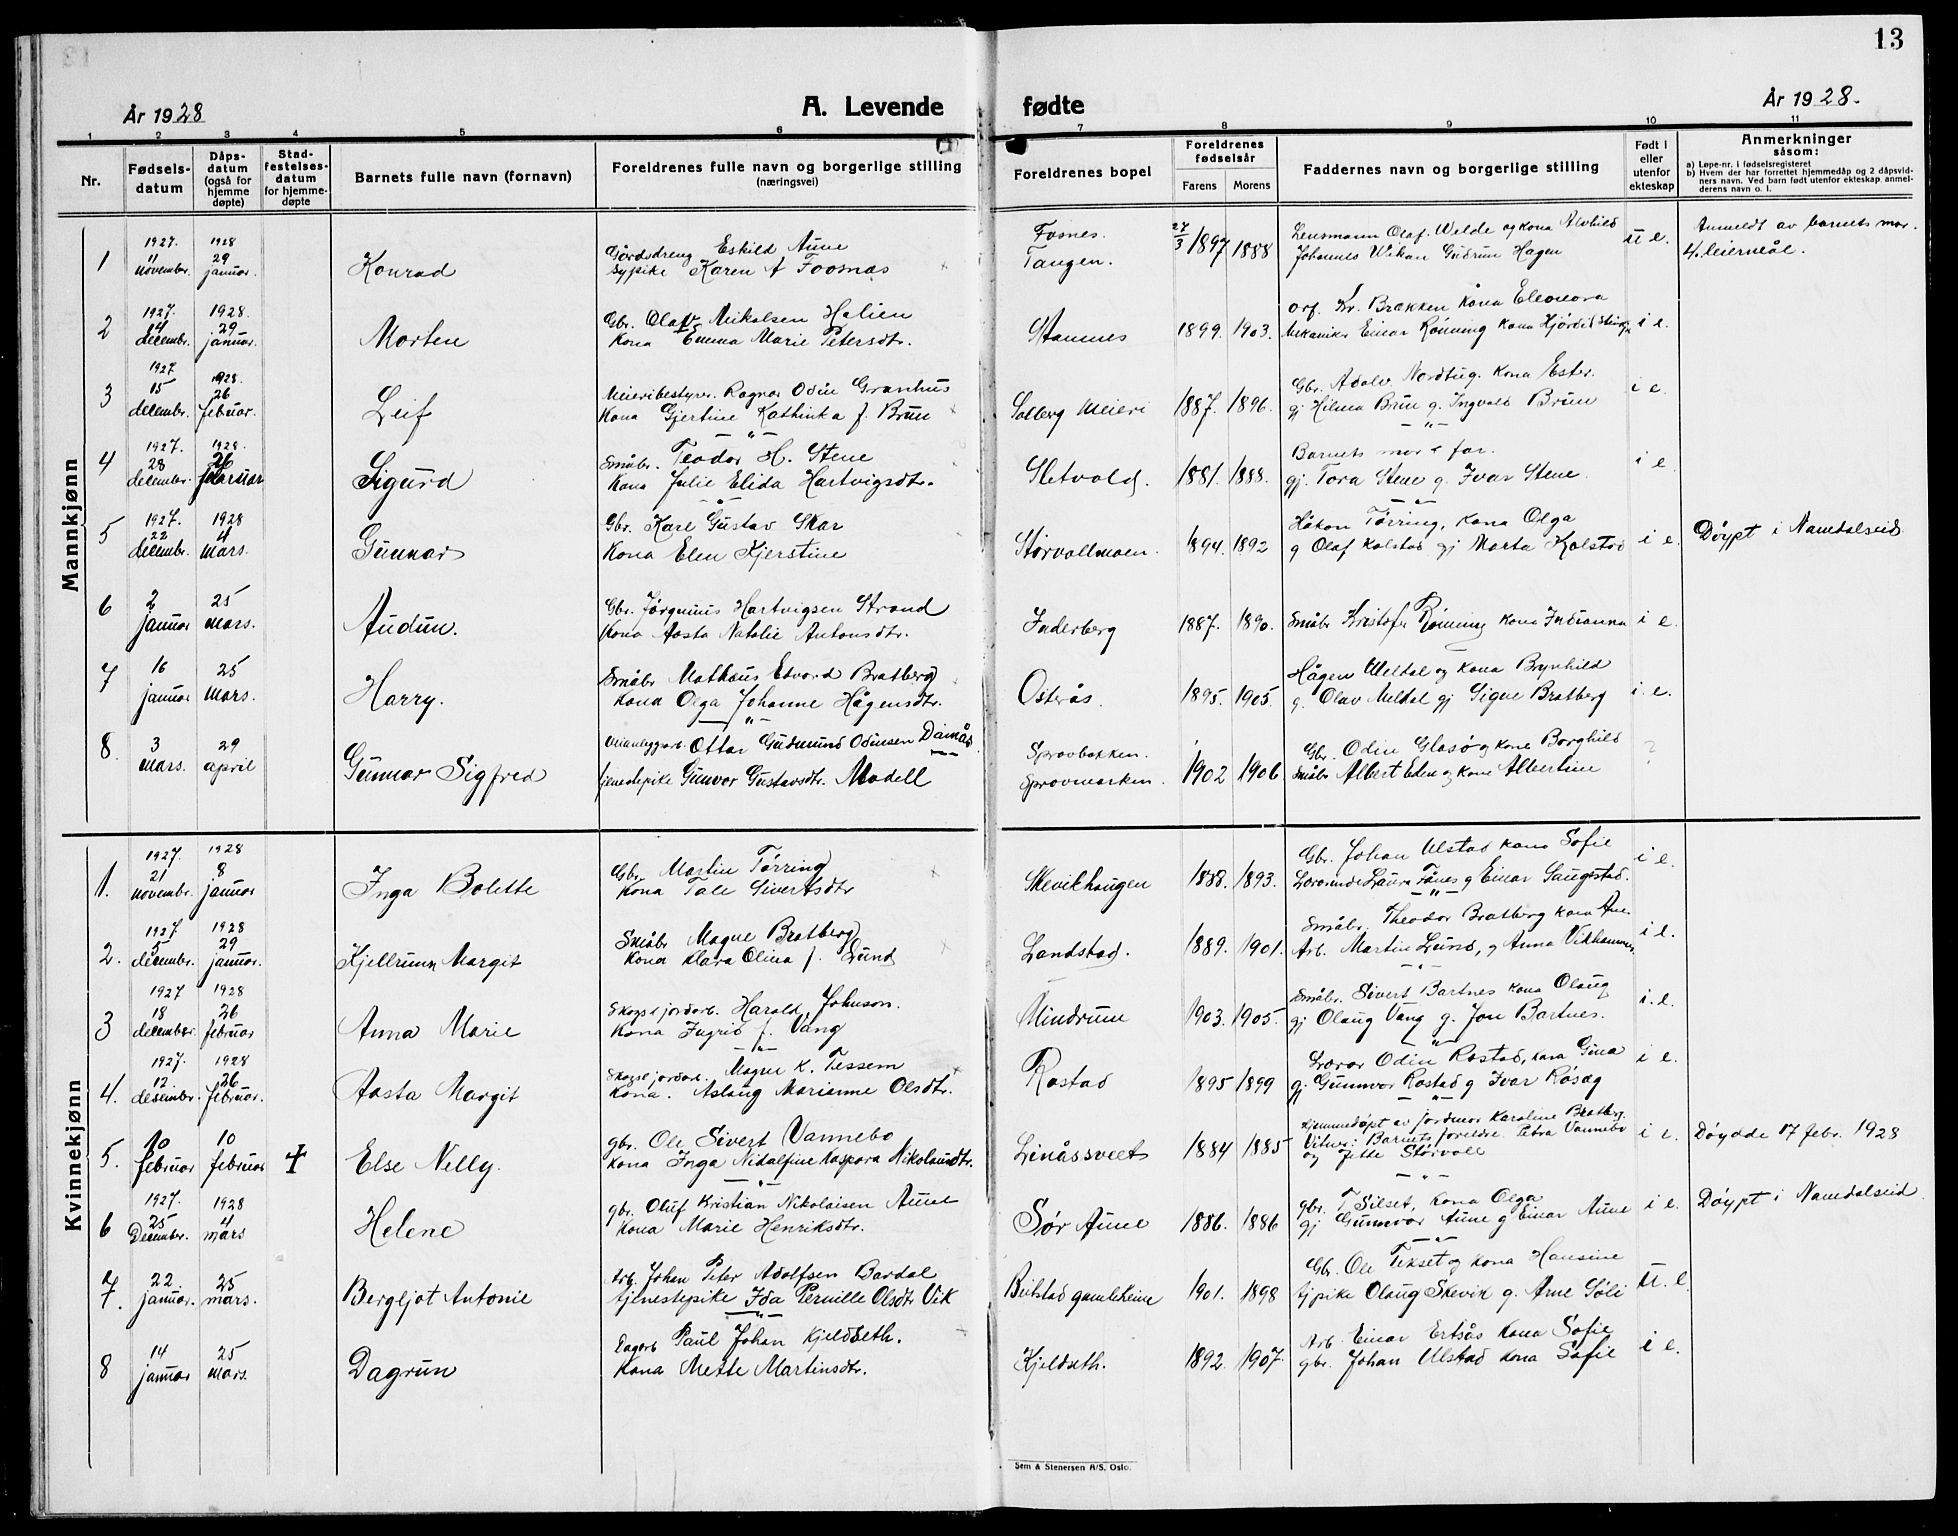 13
År 1928
A. Levende fødte
År 1928.
1 2 3 4 5 6 7 8 9 10 11
Nr.
Fødsels-datum
Dåps-datum (også for hjemme døpte)
Stad-festelses-datum for hjemme-døpte
Barnets fulle navn (fornavn)
Foreldrenes fulle navn og borgerlige stilling (næringsvei)
Foreldrenes bopel
Foreldrenes fødselsår
Farens Morens
Faddernes navn og borgerlige stilling
Født i eller utenfor ekteskap
Anmerkninger såsom:
a) Løpe-nr. i fødselsregisteret
b) Hvem der har forrettet hjemmedåp og 2 dåpsvidners navn. Ved barn født utenfor ekteskap, anmelderens navn o. l.
Mannkjønn
1927. 1928 Gårdsdreng Eskild Aune Fosnes. 27/3 1897 1888 Lensmann Olaf Welde og kona Alvhild u e. Anmeldt av barnets mor.
1 11 november. 29 januar. Konrad Sypike Karen A Foosnæs Tangen. Johannes Wikan Gudrun Hagen 4. leiermål.
1927. 1928. Gbr. Olav Mikalsen Holien Kr. Brækken kona Eleonora
2 14 decembr. 29 januar. Morten Kona Emma Marie Petersdtr. Stamnes 1899. 1903. Mekaniker Einar Rønning kona Hjørdis i e.
1927 1928. Meieribestyr. Ragnar Odin Granhus Gbr. Adolv Nordtug. kona Ester.
3 15 decembr. 26 februar. Leif Kona Gjertine Kathinka f. Brun Solberg Meieri 1887. 1896. gj Hilma Brun g. Ingvald Brun i e.
1927. 1928. Småbr. Teodor H. Stene Barnets mor & far.
4 28 decembr. 26 februar Sigurd Kona Julie Elida Hartvigsdtr. Sletvold. 1881. 1888. gj. Tora Stene g. Ivar Stene. i e
1927. 1928 Gbr. Kare Gustav Skar Håkon Tørring, kona Olga
5 22 decembr. 4 mars. Gunnar Kona Elen Kjerstine Storvollmoen. 1894. 1892 g Olaf Kolstad gj Marta Kolstad i e. Døypt i Namdalseid
6 2 januar 25 mars. Audun. Gbr. Jørginus Hartvigsen Strand
Kona Aasta Natalie Antonsdtr. Inderberg 1887. 1890. Småbr Kristofer Rønning kona Indianna i e.
7 16 januar 25 mars. Harry. Småbr Mathæus Edvard Bratberg Hågen Meltal og kona Brynhild
Kona Olga Johanne Hågensdtr. Osterås. 1895. 1905. g. Olav Meltal gj Signe Bratberg i e.
8. 3 mars. 29 april Gunnar Sigfred Ottar Gudmund Odinsen Dainås Sprovbakken. Gbr. Odin Glasø og kone Borghild
tjenestepike Gunvor Gustavsdtr. Modell Sprovmarken. 1902 1906 Småbr Albert Eden og kone Albertine ?
Kvinnekjønn
1927. 1928 Gbr. Martin Tørring Gbr. Johan Ulstad kona Sofie
1. 21 novembr. 8 januar Inga Bolette Kona Tale Sivertsdtr Skevikhaugen 1888. 1893. Lærerinde Laura Fånes g Einar Saugestad. i e.
1927. 1928 Småbr Magne Bratberg Småbr. Theodor Bratberg kona Ane.
2. 5 decembr. 29 januar. Kjellrunn Margit Kona Klara Olina f. Lund Landstad. 1889. 1901. Arb. Martin Lund, g Anna Vikhammer i e.
1927 1928 Skogs & jordarb. Harald Johnson. Småbr. Sivert Bartnes kona Olaug
3 18 december. 26 februar Anna Marie Kona Ingrid f. Vang Mindrum 1903. 1905. gj Olaug Vang g. Jon Bartnes. i. e.
1927. 1928 Skogs & jordarb. Magne K. Tessem Lærer Odin Rostad, kona Gina
4. 12. desembr. 26 februar. Aasta Margit Kona. Aslaug Marianne Olsdtr. Rostad 1895 1899 gj. Gunnvor Rostad g Ivar Røsæg i e.
10 10 gbr. Ole Sivert Vannebo Hjemmedøpt av jordmor Karoline Bratberg.
5. februar februar Else Nelly. Kona Inga Nikalfine Kaspara Nikolausdtr. Linåssveet 1884 1885 Vitner: Barnets foreldre. Petra Vannebo og Jette Storvoll i e. Døydde 17 febr. 1928
1927. 1928 gbr. Oluf Kristian Nikolaisen Aune gbr. T Silset, kona Olga
6 25 Decembr. 4 mars Helene Kona Marie Henriksdtr. Sør Aune 1886. 1886 gj Gunnvor Aune g Einar Aune i e. Døypt i Namdalseid
7. 22. januar. 25 mars. Bergljot Antonie Arb. Johan Peter Adolfsen Bardal Gbr. Ole Tekset og kona Hansine
tjenestepike Ida Pernille Olsdtr Vik Beitstad gamleheim 1901. 1898 tjpike Olaug Skevik g. Arne Søli u. e.
8 14 januar 25 mars. Dagrun Dagarb Paul Johan Kjeldseth. Arb. Einar Ertsås kona Sofie
Kona Mette Martinsdtr. Kjeldseth. 1892. 1907. gbr. Johan Ulstad kona Sofie i e.
Sem & Stenersen A/S, Oslo.